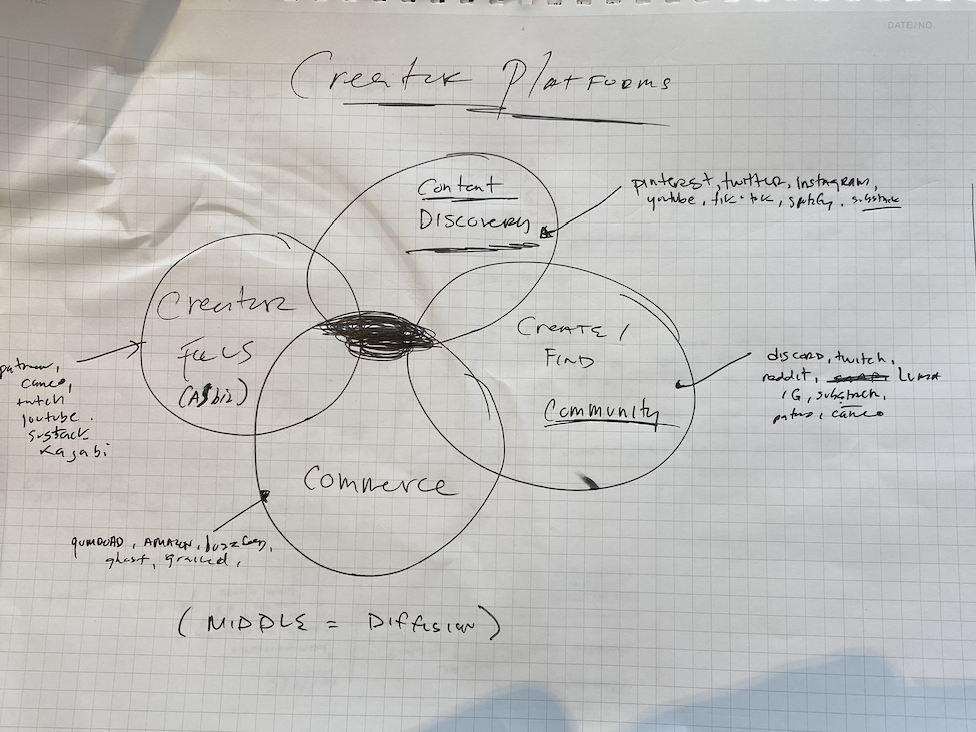 DATE/NO.
Creator Platforms
Content
Discovery
pinterest, twitter, instagram,
youtube, tik-tok, spotify, substack
Creator
Focus
(As biz)
Create /
Find
Community
discord, twitch,
reddit, Luma
IG, substack,
cameo
cameo,
twitch
youtube.
sustack
Kajabi
Commerce
gumroad, Amazon,
ghost,
(MIDDLE = Diffusion)